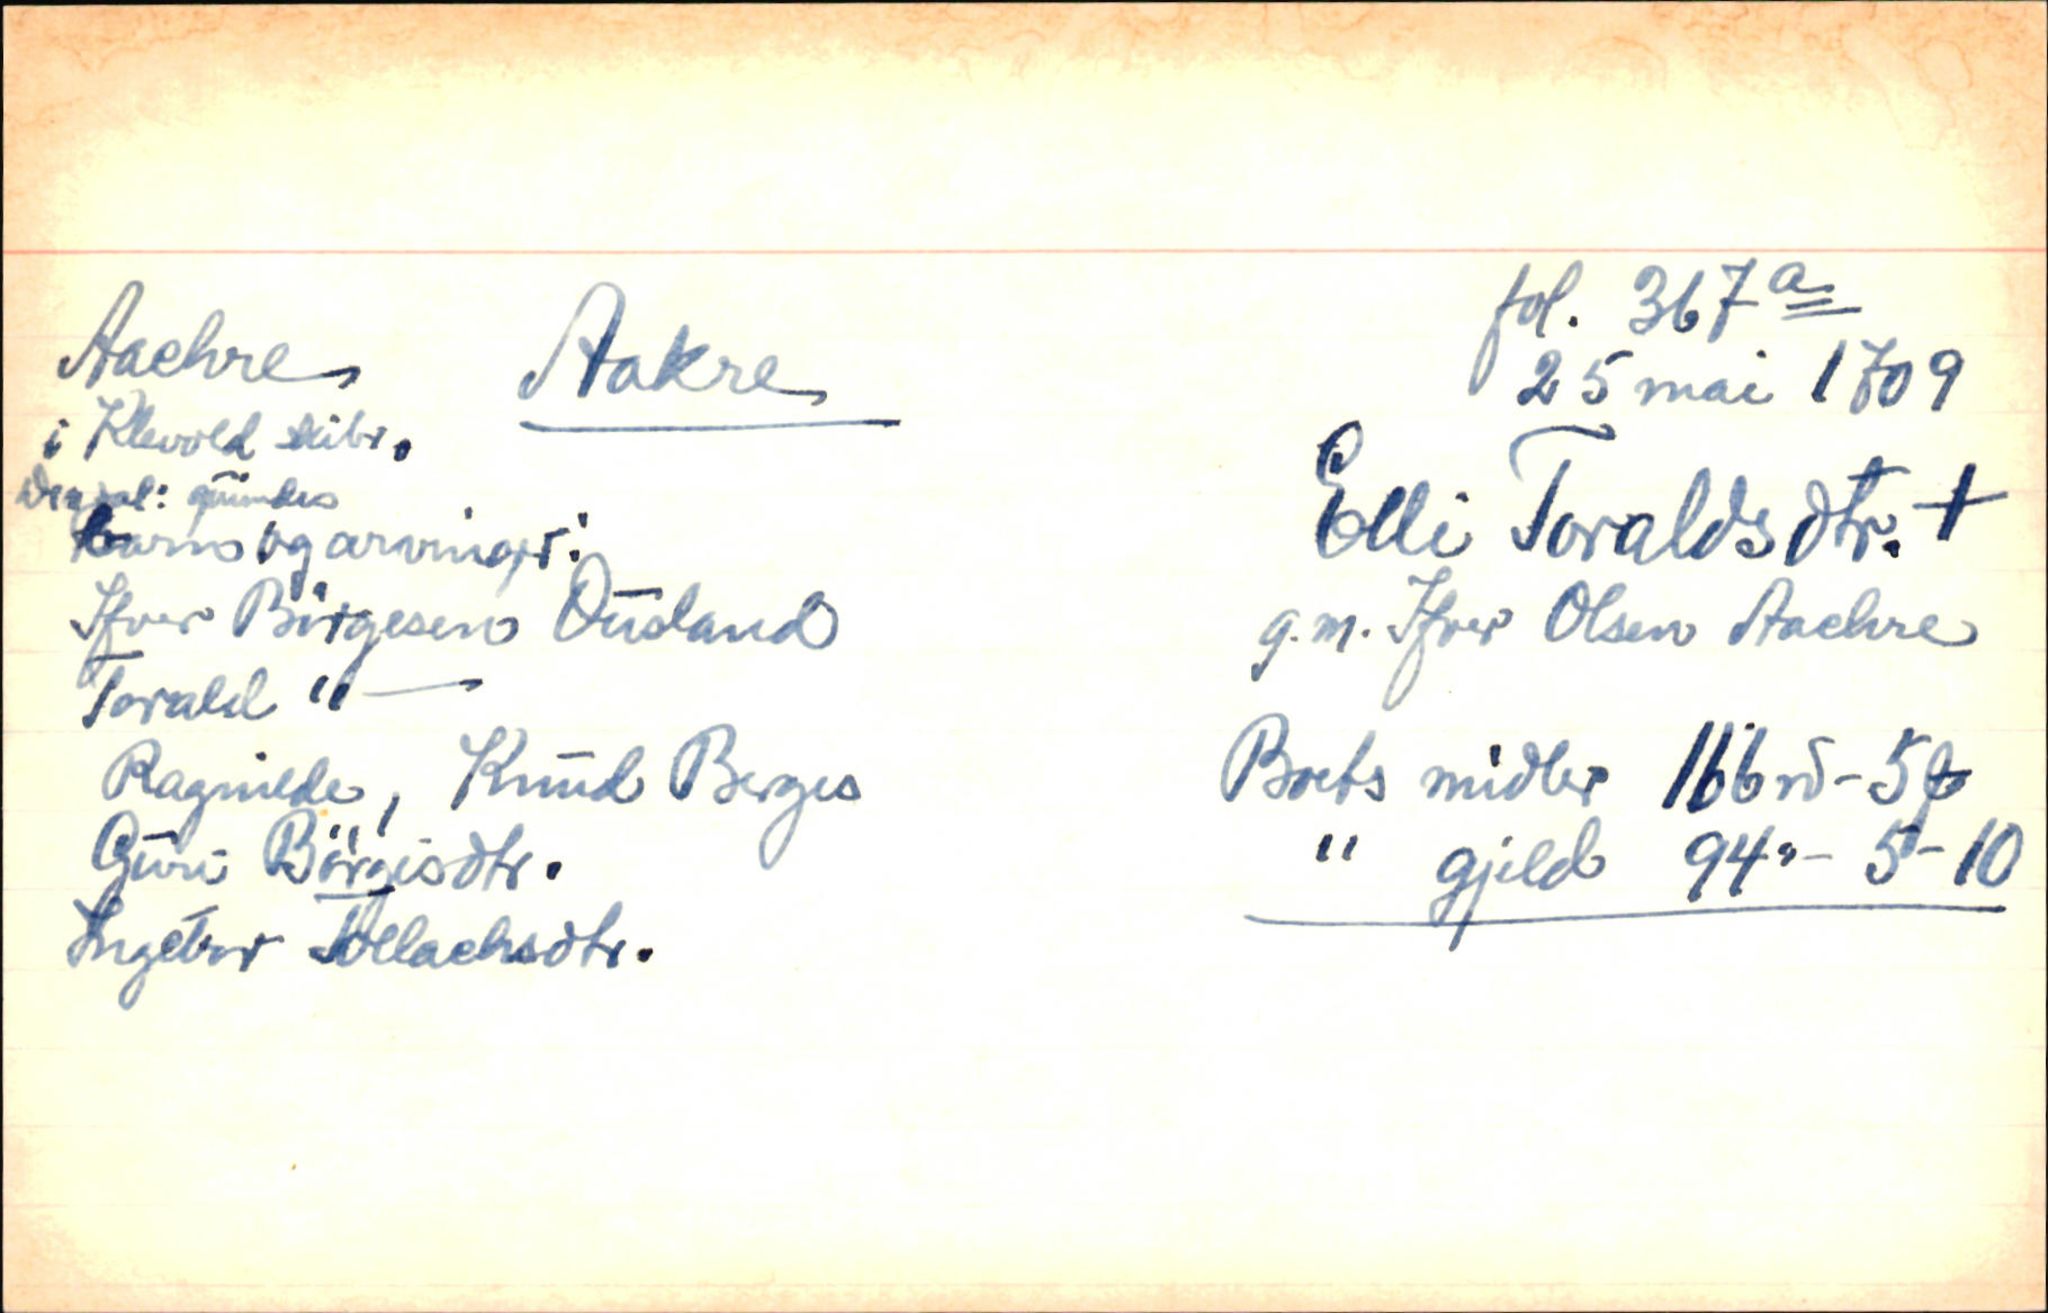 Aachre Aakre
i Klevold skibr.
qvindes
barns og arvinger:
Ifver Börgesen Ousland
Torald " —
Ragnilde, Knud Berges
Guri Börgisdtr.
Ingebor Tollachsdtr.
fol. 367 a
25 mai 1709
Elli Toraldsdtr. +
g.m. Ifver Olsen Aachre
Boets midler 166 rd - 5 f
" gjeld 94 " - 5 - 10